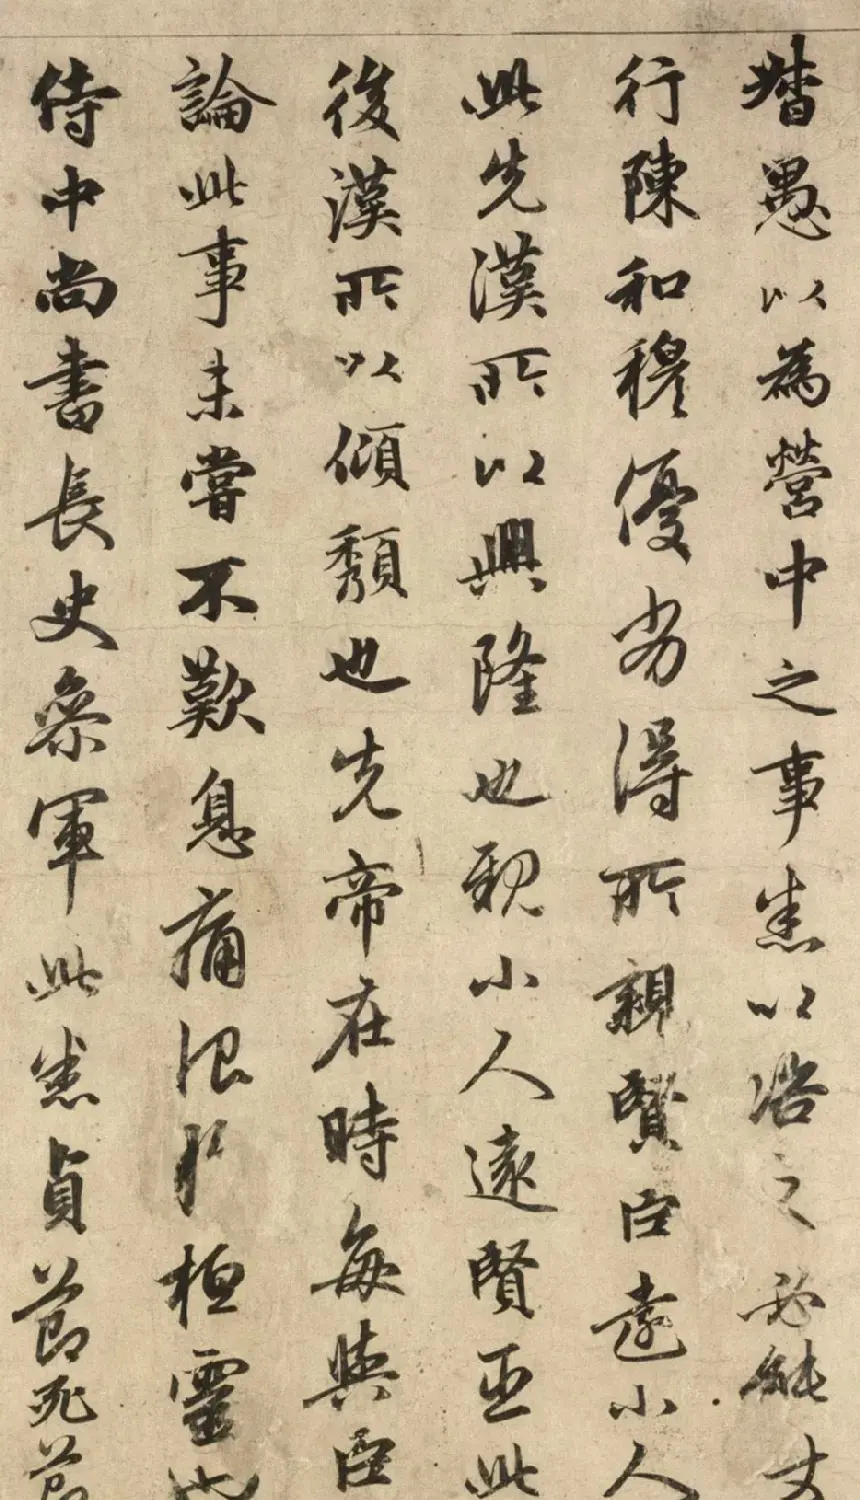 督愚以為營中之事悉以咨之必能
行陳和穆優劣得所親賢臣遠小人
此先漢所以興隆也親小人遠賢臣此
後漢所以傾頹也先帝在時每與臣
論此事未嘗不歎息痛恨於桓靈也
侍中尚書長史參軍此悉貞節死節